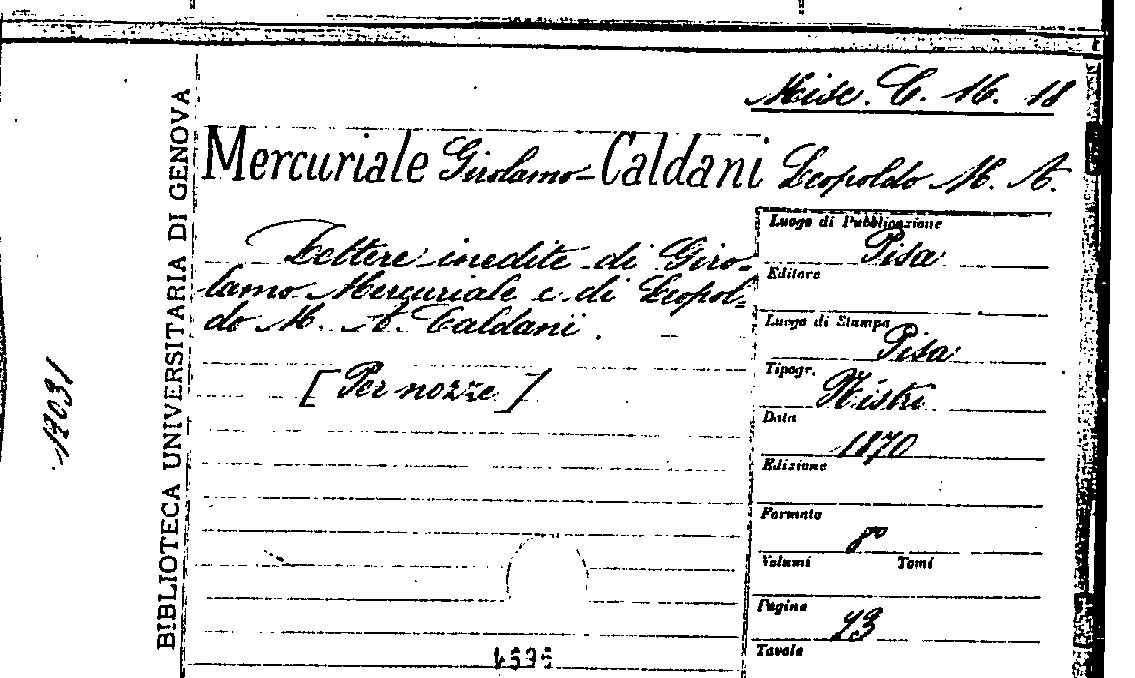 Misc. C. 16. 18
Mercuriale Girolamo = Caldani Leopoldo M. A.
Lettere inedite di Giro-
lamo Mercuriale e di Leopol=
do M. A. Caldani.
[Per nozze]
Luogo di Pubblicazione
Pisa
Editore
Luogo di Stampa
Pisa
Tipogr.
Nistri
Data
1870
Edizione
Formato
8°
Volumi Tomi
Pagine
23
Tavole
BIBLIOTECA UNIVERSITARIA DI GENOVA